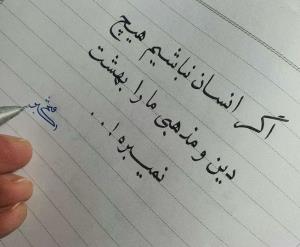 اگر انسان نباشیم هیچ
دین و مذهبی ما را بهشت
نمیبره!...